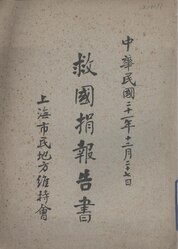 中華民國二十一年十二月二十七日
救國捐報告書
上海市民地方維持會